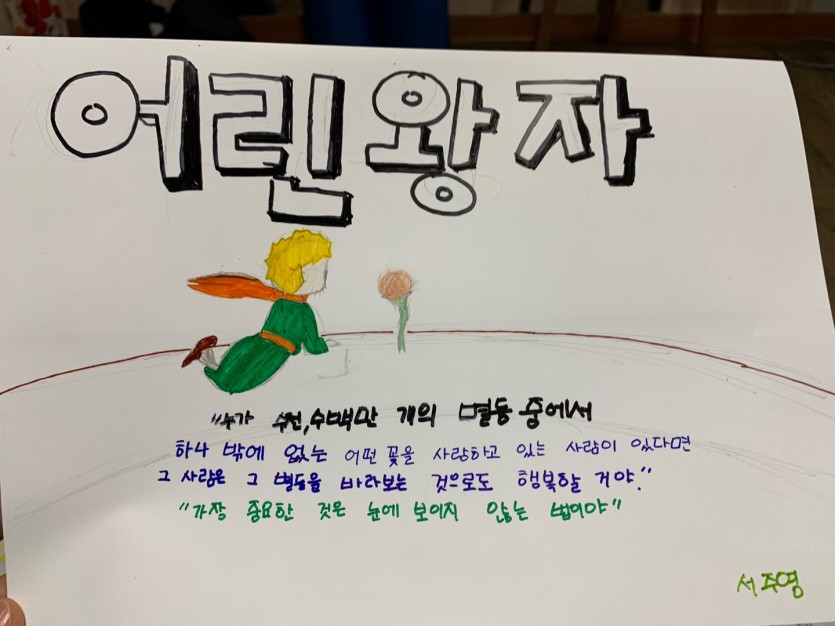 어린왕자
"누가 수천,수백만 개의 별들 중에서
하나 밖에 없는 어떤 꽃을 사랑하고 있는 사람이 있다면
그 사람은 그 별들을 바라보는 것으로도 행복할 거야."
"가장 중요한 것은 눈에 보이지 않는 법이야"
서주영